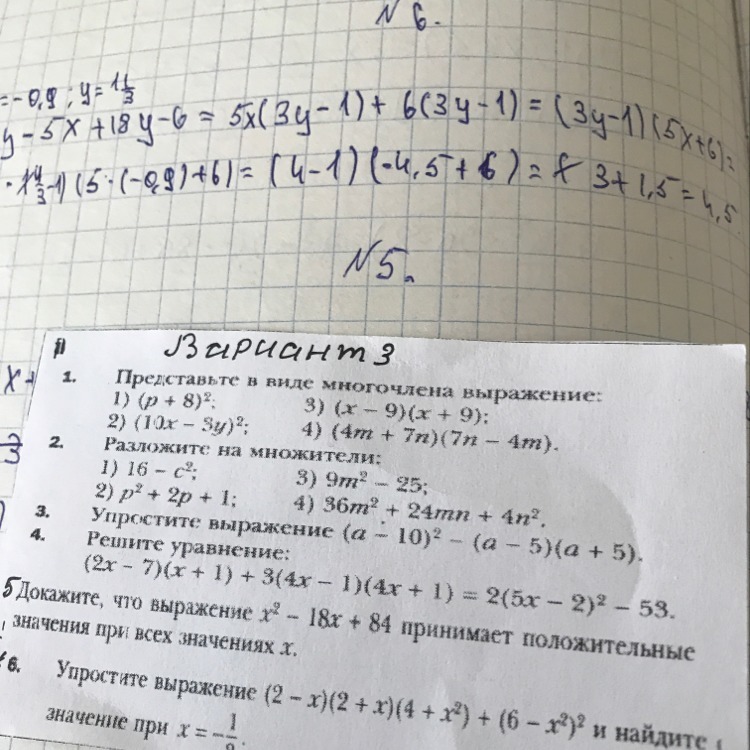 N 6.
= -0,9 ; y = 1 1/3
y - 5x + 18y - 6 = 5x(3y-1) + 6(3y-1) = (3y-1)(5x+6) =
-1)(5·(-0,9)+6) = (4-1)(-4,5+6) = 3+1,5 = 4,5
N5.
Вариант 3
1. Представьте в виде многочлена выражение:
1) (p + 8)²; 3) (x − 9)(x + 9);
2) (10x − 3y)²; 4) (4m + 7n)(7n − 4m).
2. Разложите на множители:
1) 16 − c²; 3) 9m² − 25;
2) p² + 2p + 1; 4) 36m² + 24mn + 4n².
3. Упростите выражение (a − 10)² − (a − 5)(a + 5).
4. Решите уравнение:
(2x − 7)(x + 1) + 3(4x − 1)(4x + 1) = 2(5x − 2)² − 53.
5 Докажите, что выражение x² − 18x + 84 принимает положительные
значения при всех значениях x.
6. Упростите выражение (2 − x)(2 + x)(4 + x²) + (6 − x²)² и найдите
значение при x = −